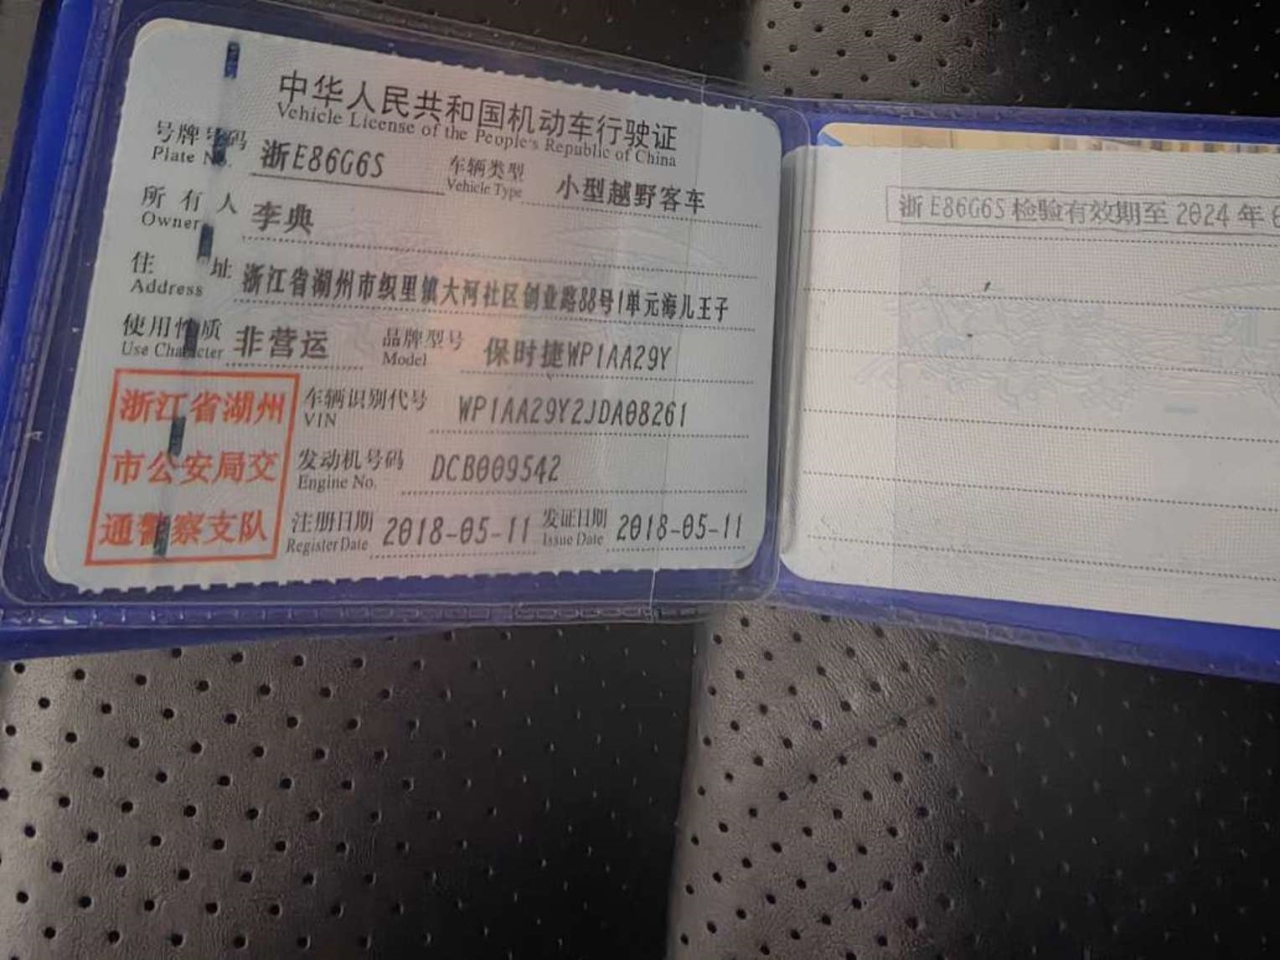 中华人民共和国机动车行驶证
Vehicle License of the People's Republic of China
号牌号码 浙E86G6S 车辆类型 小型越野客车
Plate No. Vehicle Type
所有人 李典
Owner
住址 浙江省湖州市织里镇大河社区创业路88号1单元海儿王子
Address
使用性质 非营运 品牌型号 保时捷WP1AA29Y
Use Character Model
浙江省湖州
市公安局交
通警察支队
车辆识别代号 WP1AA29Y2JDA08261
VIN
发动机号码 DCB009542
Engine No.
注册日期 2018-05-11 发证日期 2018-05-11
Register Date Issue Date
浙E86G6S检验有效期至2024年